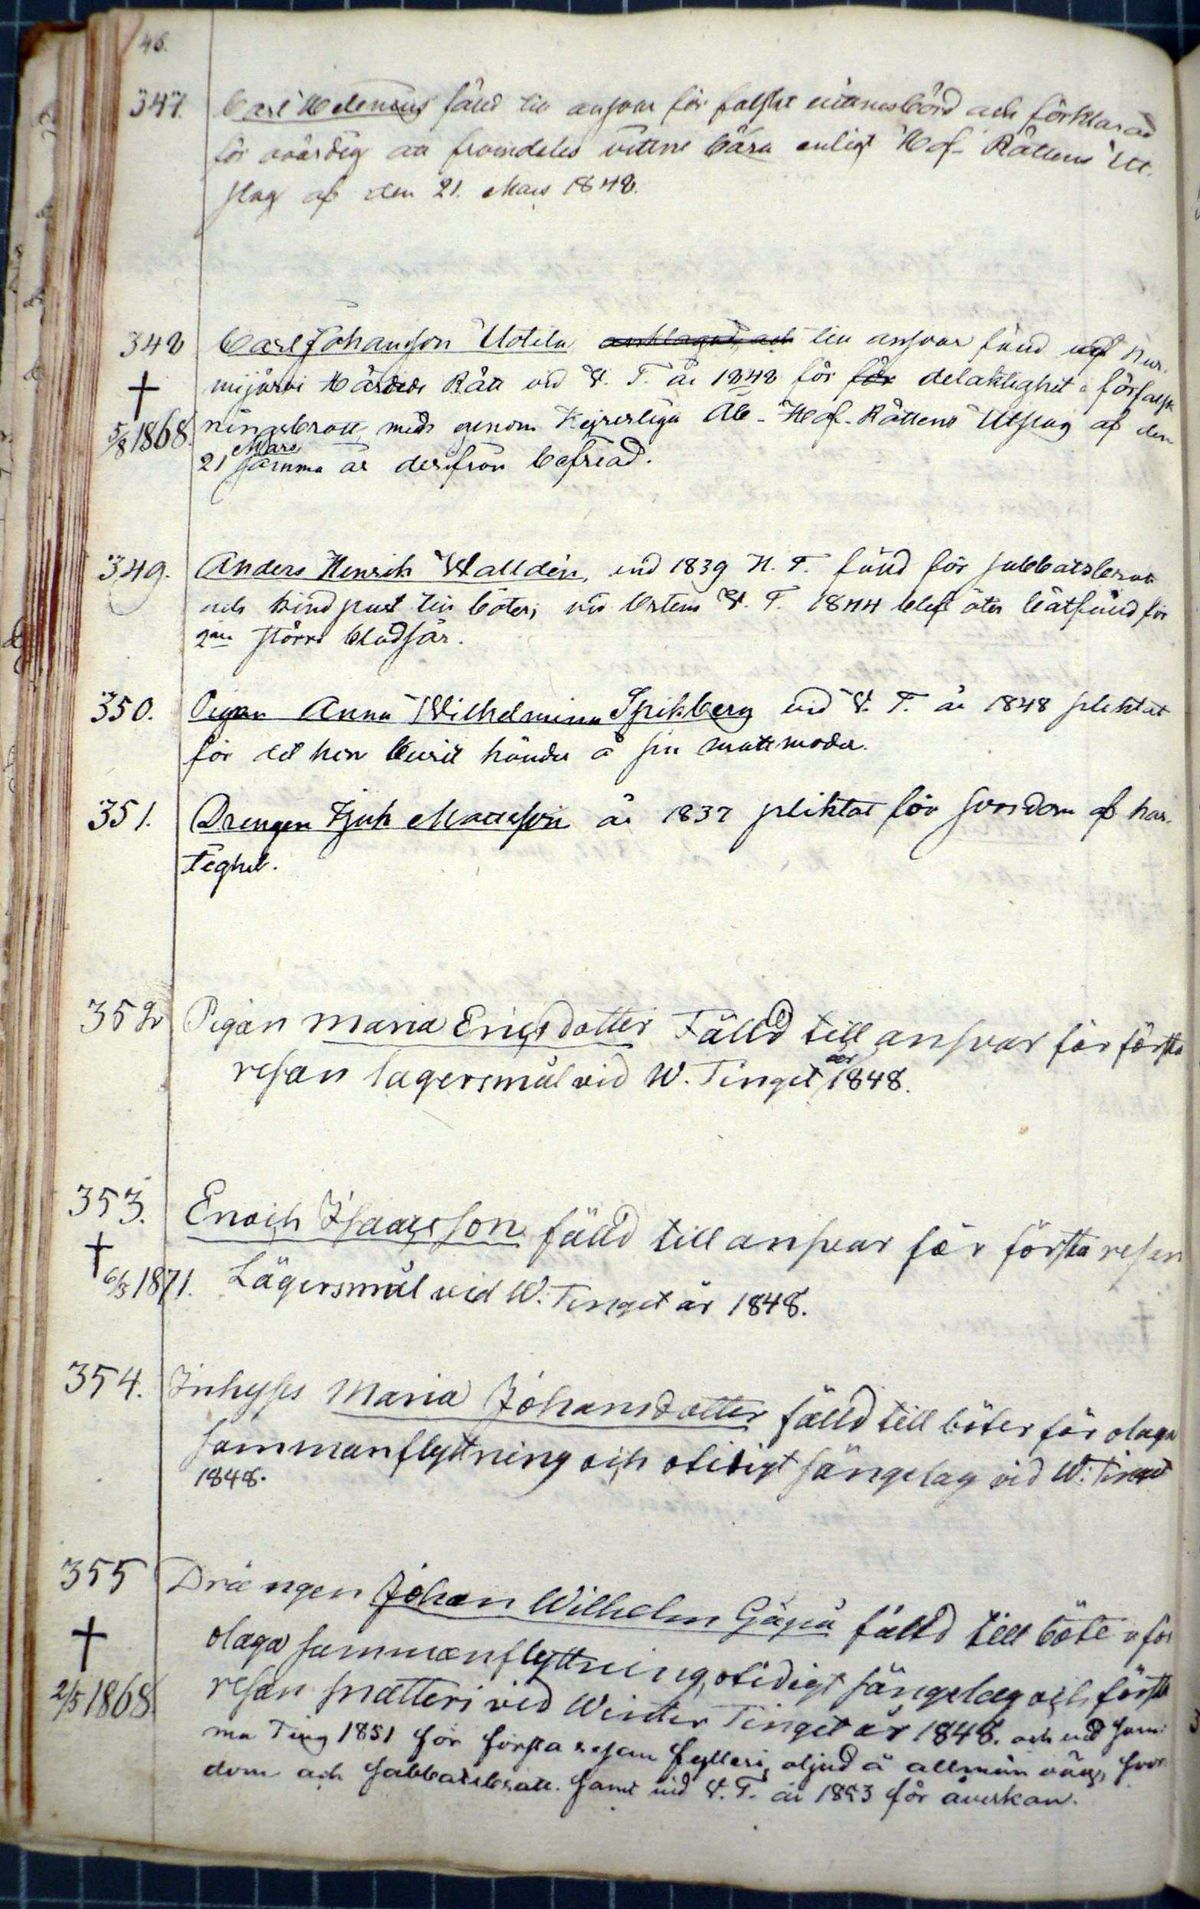 46.
347. Carl Helenius fälld till ansvar för falskt vittnesbörd och förklarad
för ovärdig att framdeles vittne bära enligt Hof-Rättens Ut-
slag af den 21. Mars 1848.
348 Carl Johansson Uotila anklagad och till ansvar fälld vid Nur-
mijärvi Härads Rätt vid V. T. år 1848 för för delaktighet i förfalsk-
ningsbrott, men genom Kejserliga Åb. Hof-Rättens Utslag af den
21 Mars samma år derifrån befriad.
† 5/8 1868.
349. Anders Henrik Walldén, vid 1839 H. T. fälld för sabbatsbrott
och kindpust till böter; vid V. T. 1844 blef åter bötfälld för
2ne större blodsår.
350. Pigan Anna Wilhelmina Spikberg vid V. T. år 1848 pliktat
för det hon burit händer å sin matmoder.
351. Drengen Isak Mattsson år 1837 pliktat för svordom af has-
tighet.
352 Pigan Maria Ericsdotter Fälld till ansvar för första
resan lägersmål vid W. Tinget år 1848.
353. Enoch Isaacsson fälld till ansvar för första resan
Lägersmål vid W: Tinget år 1848.
† 6/3 1871.
354. Inhyses Maria Johansdotter fälld till böter för olaga
sammanflyttning och otidigt sängelag vid W: Tinget
1848.
355 Drängen Johan Wilhelm Gäpä fälld till böter för
olaga sammanflyttning, otidigt sängelag och första
resan snatteri vid Winter Tinget år 1848. och vid sam-
ma Ting 1851 för första resan fylleri, oljud å allmän väg, svor-
dom och sabbatsbrott. samt vid V. T. år 1853 för åverkan.
† 2/5 1868.